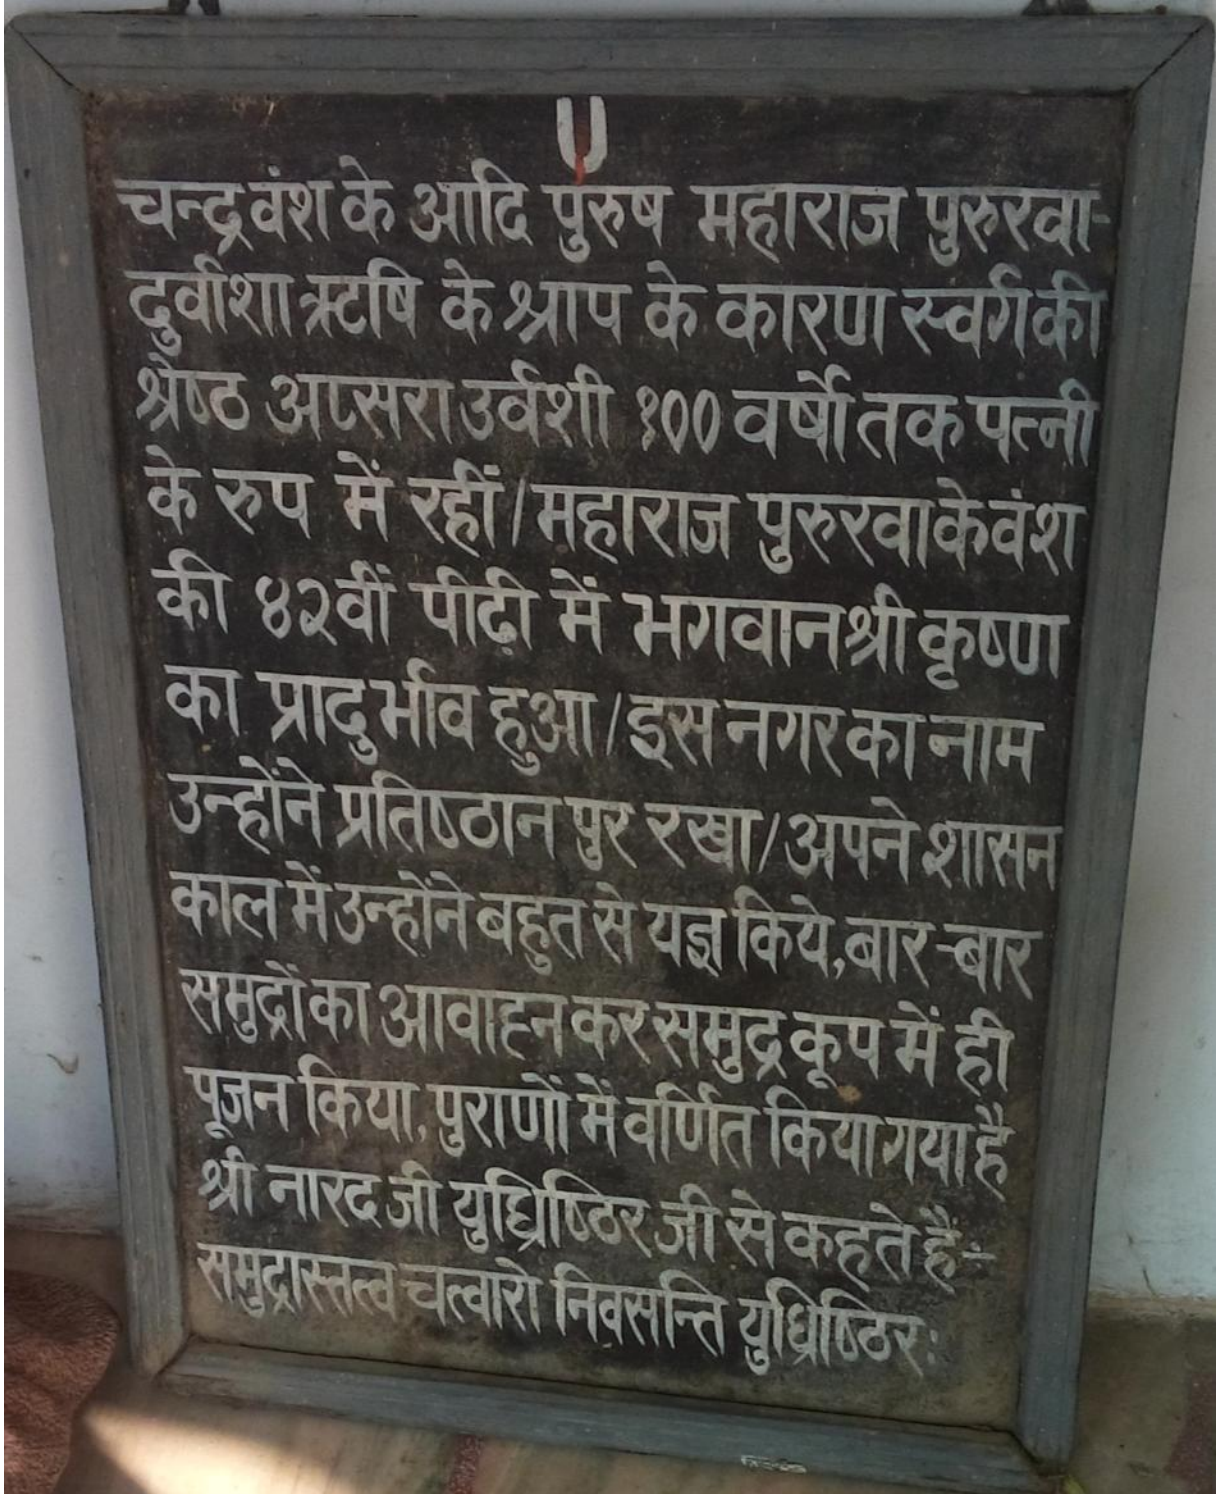 चन्द्रवंश के आदि पुरुष महाराज पुरुरवा-
दुर्वाशा ऋषि के श्राप के कारण स्वर्ग की
श्रेष्ठ अप्सरा उर्वशी १00 वर्षो तक पत्नी
के रुप में रहीं/महाराज पुरुरवा के वंश
की ४२वीं पीढ़ी में भगवान श्री कृष्ण
का प्रादुर्भाव हुआ/इस नगर का नाम
उन्होंने प्रतिष्ठान पुर रखा/अपने शासन
काल में उन्होंने बहुत से यज्ञ किये,बार-बार
समुद्रों का आवाह्न कर समुद्र कूप में ही
पूजन किया,पुराणों में वर्णित किया गया है
श्री नारद जी युध्रिष्ठिर जी से कहते हैं:-
समुद्रास्तत्व चत्वारो निवसन्ति युध्रिष्ठिर: